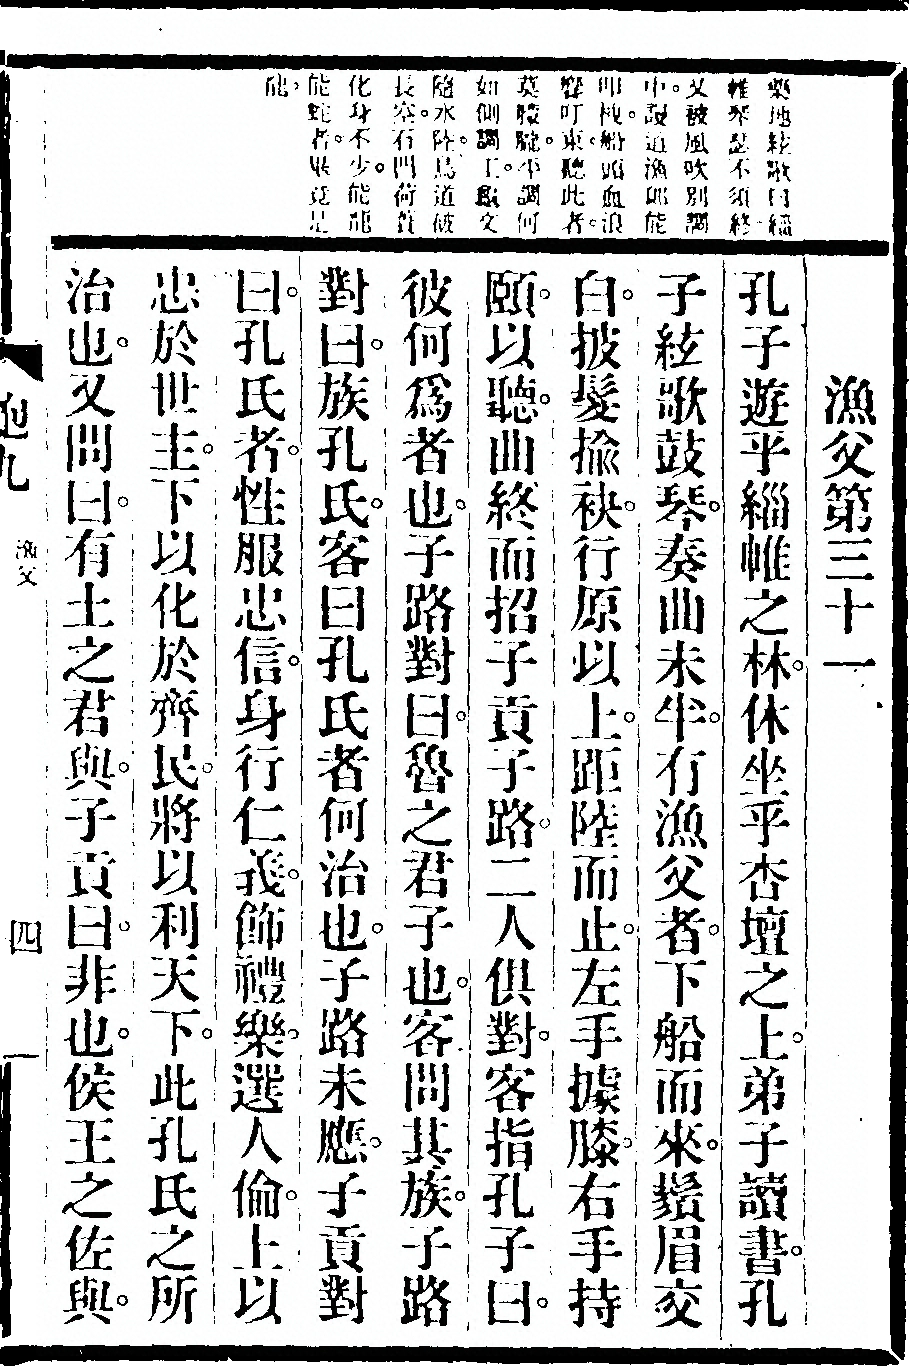 樂地絃歌曰緇
帷琴瑟不須終
又被風吹別調
中。設道漁郎能
叩栧。船頭血浪
聲叮東。聽此者。
莫朦朧。平調何
如側調工。文
隨水陸。鳥道破
長空。石門荷蕢
化身不少。能龍
能蛇者。畢竟是
漁父第三十一
孔子遊乎緇帷之林。休坐乎杏壇之上。弟子讀書。孔
子絃歌鼓琴。奏曲未半。有漁父者。下船而來。鬚眉交
白。披髮揄袂。行原以上。距陸而止。左手據膝。右手持
頤。以聽。曲終而招子貢子路。二人俱對。客指孔子曰。
彼何爲者也。子路對曰。魯之君子也。客問其族。子路
對曰。族孔氏。客曰孔氏者何治也。子路未應。子貢對
曰。孔氏者。性服忠信。身行仁義。飾禮樂。選人倫。上以
忠於世主。下以化於齊民。將以利天下。此孔氏之所
治也。又問曰。有土之君與。子貢曰。非也。侯王之佐與。
九
漁父
四